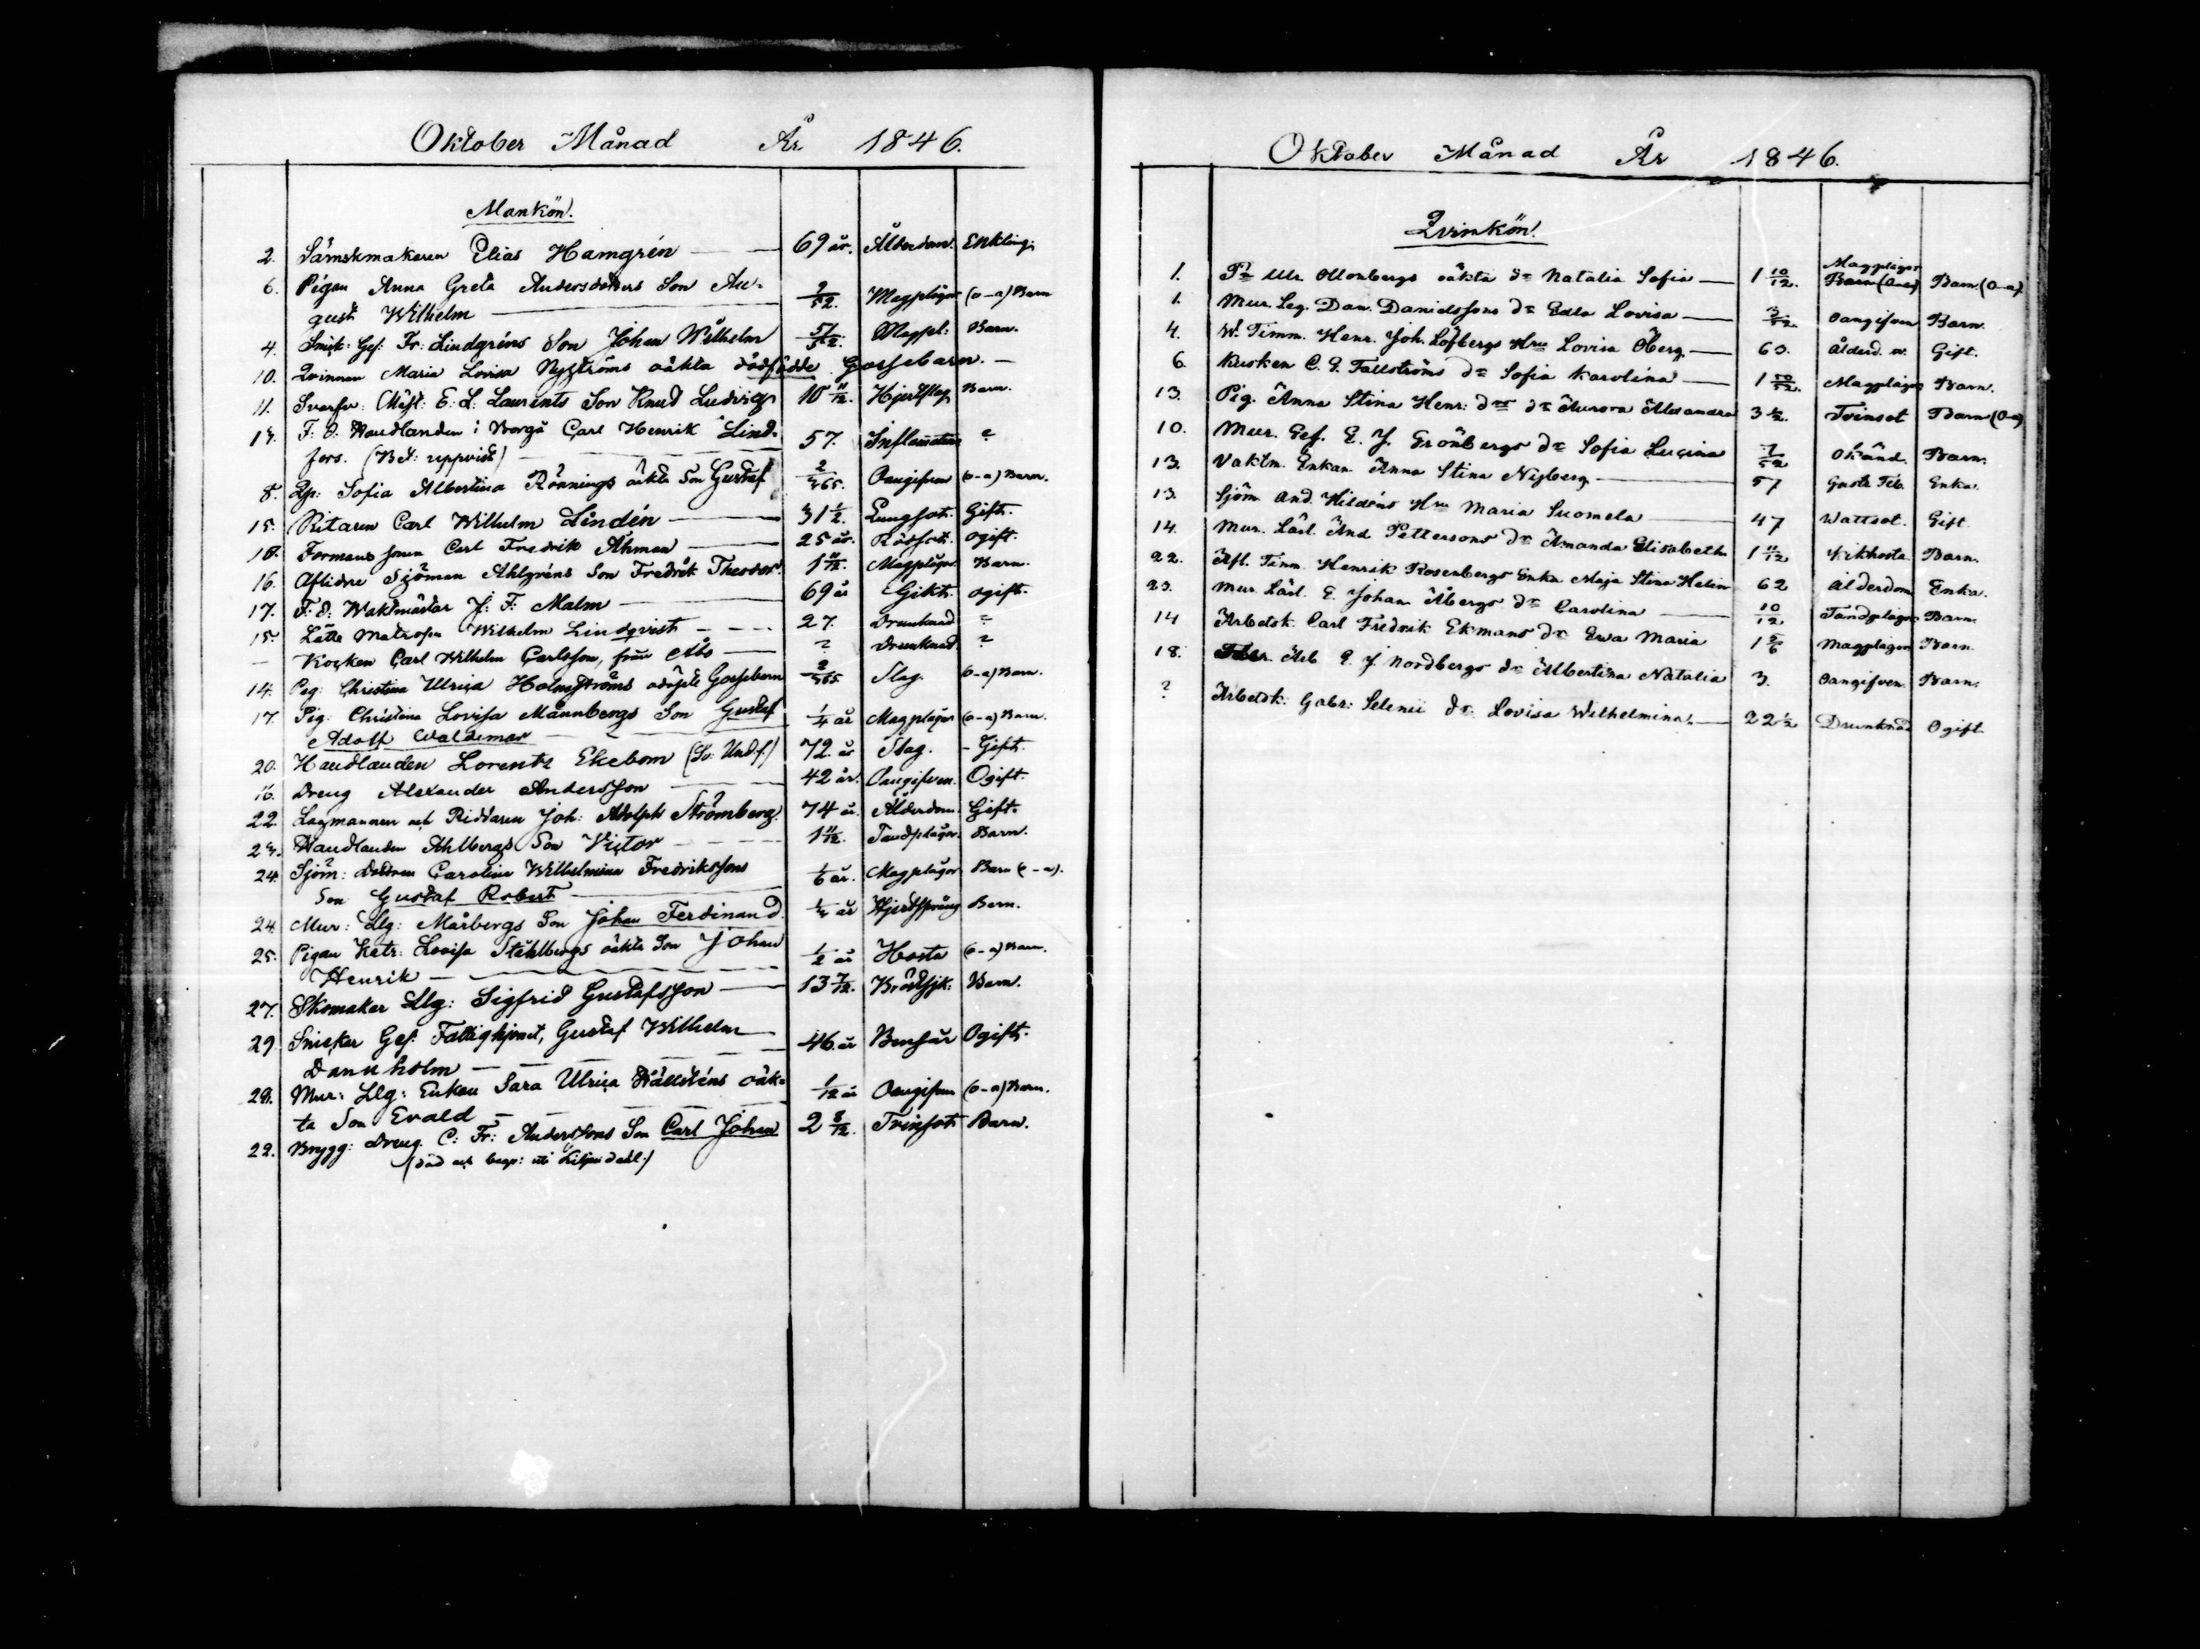 Oktober Månad År 1846.
Mankön.
2. Sämskmakaren Elias Hamgrén 69 år. Ålderdom. Enkling.
6. Pigan Anna Greta Andersdotters Son Au-
gust Wilhelm 2/52. Magplågor (o-ä) Barn
4. Smik: Ges: Fr: Lindgréns Son Johan Wilhelm Magpl: Barn.
10. Qvinnan Maria Lovisa Nyströms oäkta dödfödde Gossebarn.
11. Svarfv: Mäst: E: L: Laurents Son Knud Ludvig 10 11/12. Hjertslag Barn.
F: d: Handlanden i Borgå Carl Henrik Lind-
fors. (Bet: uppvist) 57. Inflamation ?
8. Qp: Sofia Albertina Rönnings oäkta Son Gustaf 2/365. Oangifven (o-ä) Barn.
15. Ritaren Carl Wilhelm Lindén 31 1/2. Lungsot. Gift.
Formans sonen Carl Fredrik Åhman 25 år. Rödsot. ogift.
16. Aflidne Sjöman Ahlgréns Son Fredrik Theodor. 1 11/12. Magplågor Barn.
17. F: d: Waktmästar J: F: Malm 69 år Gikt. ogift.
15. Lätte Matrosen Wilhelm Lindqvist 27. Drunknad ?
— Kocken Carl Wilhelm Carlsson, från Åbo ? Drunknad ?
14. Pig: Christina Ulrica Holmströms odöpte Gossebarn 2/365 Slag. (o-ä) Barn.
17. Pig: Christina Lovisa Månnbergs Son Gustaf
Adolf Waldemar 1/4 år Magplågor (o-ä) Barn.
20. Handlanden Lorentz Ekebom (Sv: Und:) 72. år Slag. Gift.
16. Dreng Alexander Andersson 42 år. Oangifven. Ogift.
22. Lagmannen och Riddaren Joh: Adolph Strömberg. 74 år. Ålderdom. Gift.
Handlanden Ahlbergs Son Victor 1 11/12. Tandplågor. Barn.
24. Sjöm: Dottren Carolina Wilhelmina Fredrikssons
Son Gustaf Robert 1/6 år. Magplågor Barn (o-ä).
24. Mur: Llg: Mårbergs Son Johan Ferdinand. år Hjertsprång Barn.
25. Pigan Katr: Lovisa Ståhlbergs oäkta Son Johan
Henrik 1/2 år Hosta (o-ä) Barn.
27. Skomakar Llg: Sigfrid Gustafsson 13 7/12. Bröstsjk: Barn.
29. Snickar Ges: Fattighjonet, Gustaf Wilhelm
Dannholm 46. år Bensår Ogift.
28. Mur: Llg: Enkan Sara Ulrica Hällsténs oäk-
ta Son Evald 1/12 år Oangifven (o-ä) Barn.
22. Brygg: Dreng C: Fr: Anderssons Son Carl Johan 2 8/12. Tvinsot Barn.
(död och begr: uti Liljendahl.)
Oktober Månad År 1846.
Qvinkön.
1. Ollonbergs oäkta dr Natalia Sofia 1 10/12. Magplågor Barn (O-ä) Barn. (O-ä).
1. Mur. Leg. Dan. Danielssons dr Edla Lovisa 3/52. Oangifven Barn.
4. W. Timm. Henr. Joh. Löfbergs Hru Lovisa Öberg 63. Ålderd. Gift.
6. Kusken C. G. Fallströms dr Sofia Karolina 1 50/52. Magplågor Barn.
13. Pig. Anna Stina Henr: drs dr Aurora Alexandra 3 1/2. Tvinsot Barn (O-ä)
10. Mur. Ges. E. J. Grönbergs dr Sofia Lucina 7/52 Okänd. Barn.
13. Vaktm. Enkan Anna Stina Nyberg 57 Enka.
13. Sjöm. And. Hildéns Hru Maria Suomela 47 Wattsot. Gift
14. Mur. Lärl. And Pettersons dr Amanda Elisabeth 1 11/12 Kikhosta Barn.
22. Afl. Timm. Henrik Rosenbergs Enka Maja Stina Helin 62 Ålderdom Enka.
23. Mur. Lärl. E. Johan Åbergs dr Carolina 10/12 Tandplågor Barn.
14 Arbetsk. Carl Fredrik Ekmans dr Ewa Maria 1 5/6 Magplågor Barn.
18. Arb E. J. Nordbergs dr Albertina Natalia 3. Oangifven Barn.
? Arbetsk: Gabr: Selenii dr Lovisa Wilhelmina. 22 1/2 Drunknad Ogift.